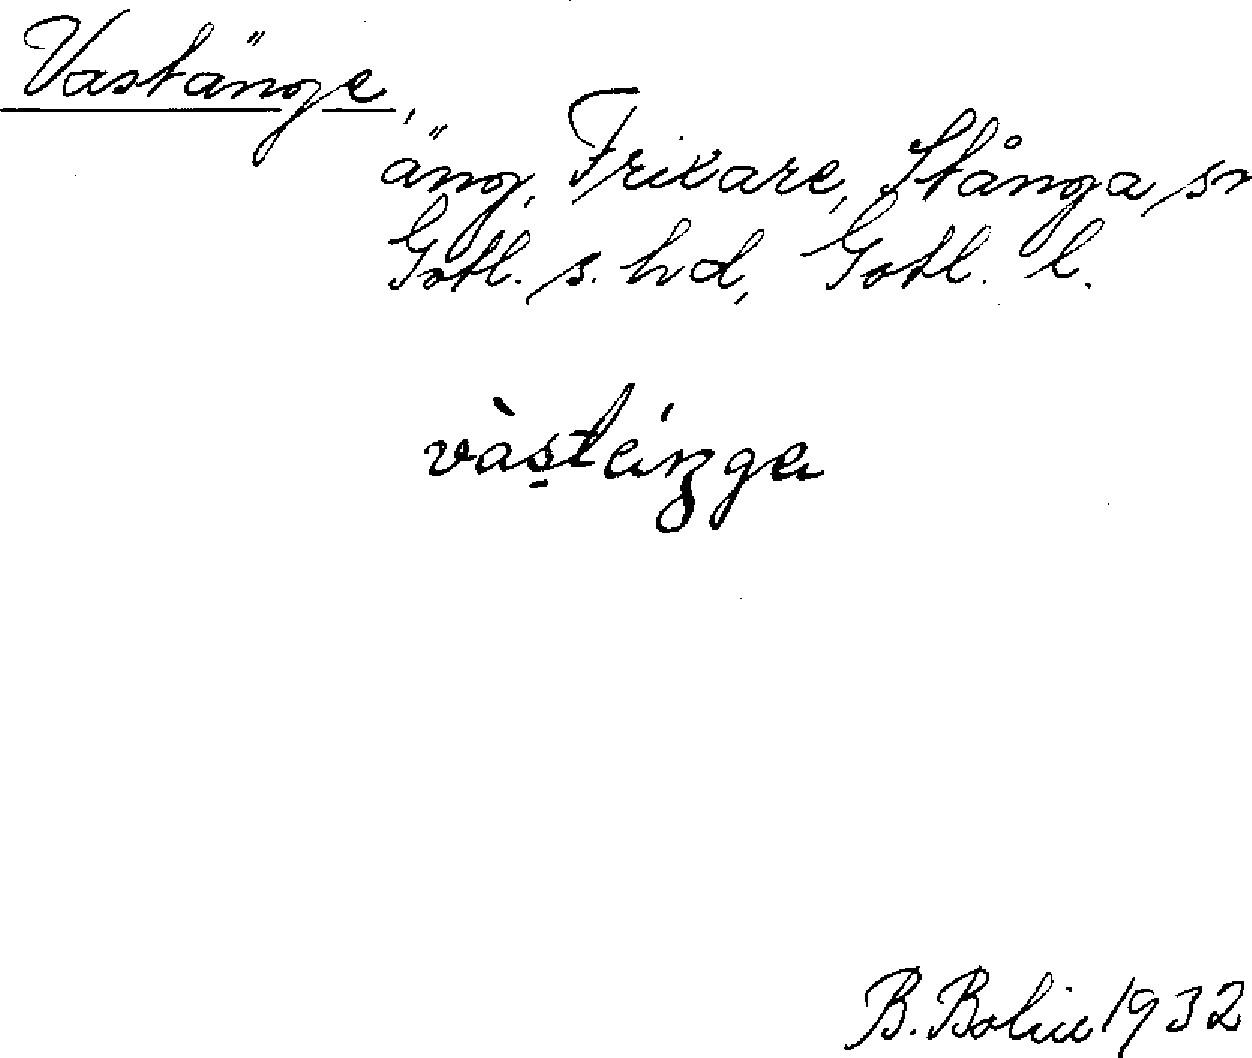 Vastänge,
äng, Frixare, Stånga sn
Gotl. s. hd, Gotl. l.
B. Bolin 1932